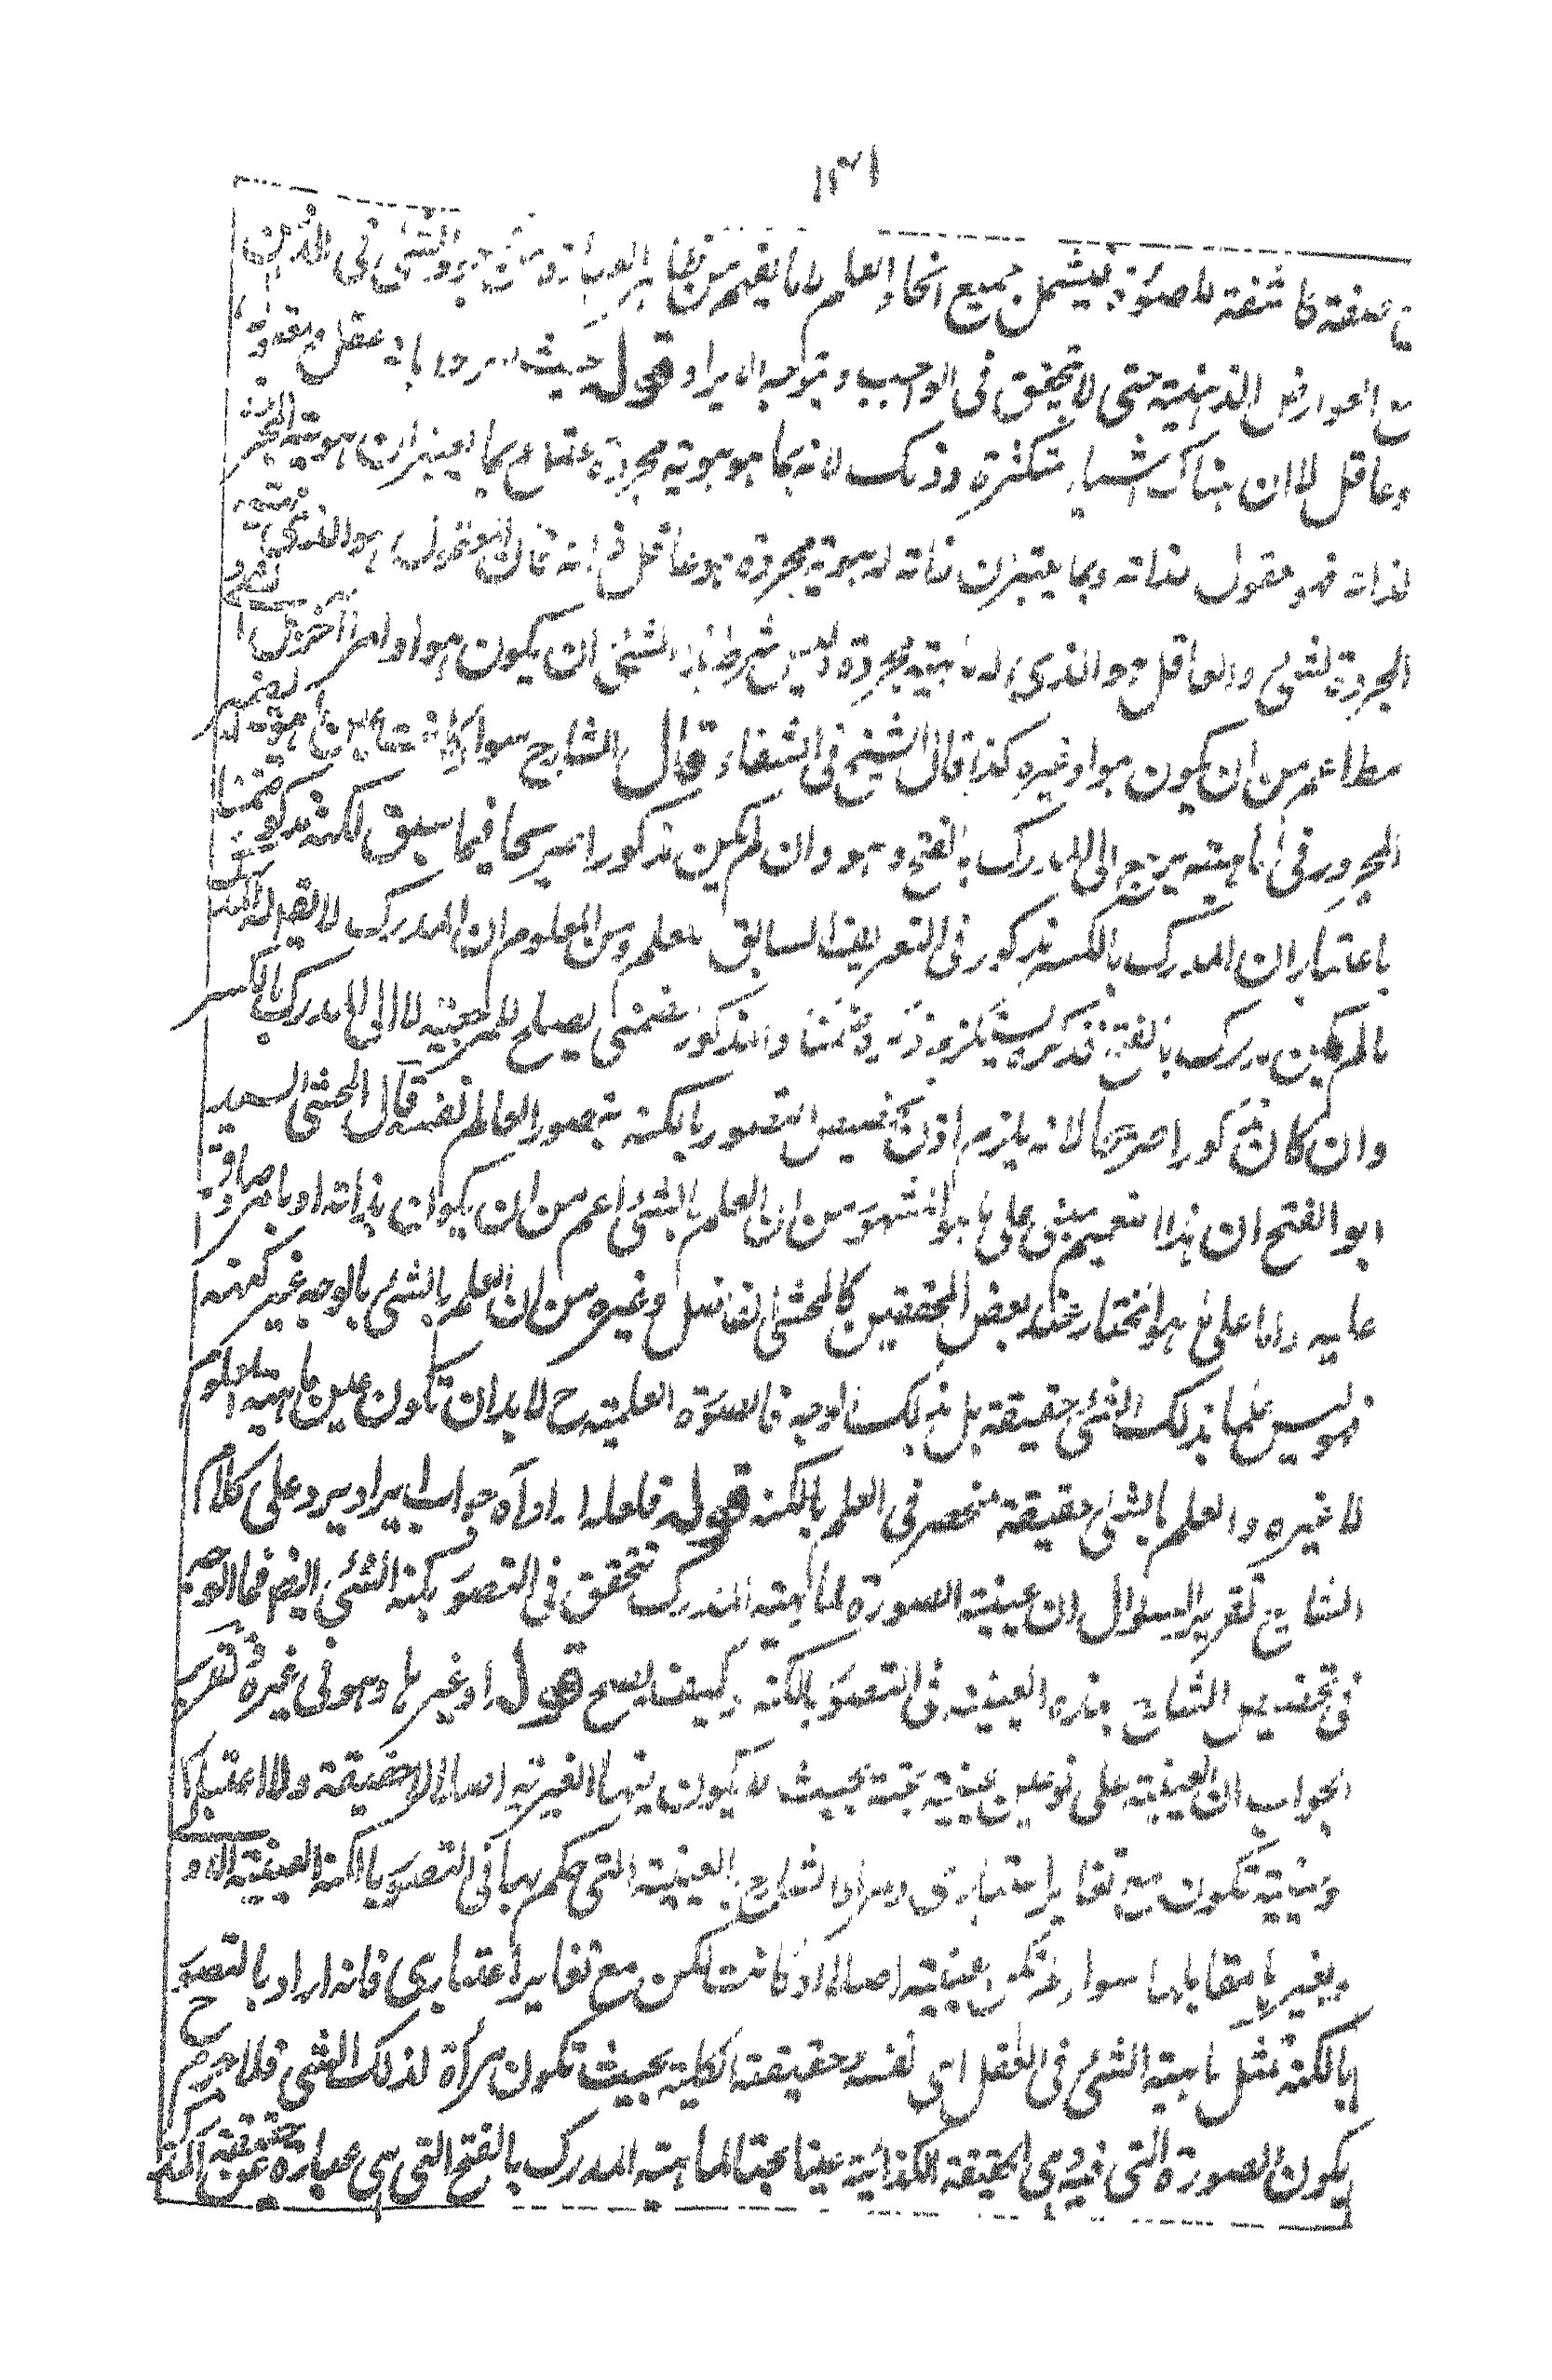 ١٣١
صفة كاشفة للصورة فيشمل جميع انحاء العلم لا ما يفهم من ظاهر العبارة من الشئ فى الذهن
مع العوارض الذهنية حتى لا يتحقق فى الواجب و يتوجه الايراد قوله حيث عقل و معقول
و عاقل لا ان هناك اشياء متكثرة و ذلك لانه بما هو هوية مجردة عقل و بما يعتبر ان هويته المجردة
لذاته فهو معقول لذاته و بما يعتبر ان ذاته له هوية مجردة هو عاقل ذاته فان المعقول هو الذى ماهيته
المجردة لشئ و العاقل هو الذى له ماهية مجردة لشئ و ليس من شرط هذا الشئ ان يكون هو او امرا آخر بل شئ
مطلقا اعم من ان يكون هو او غيره كذا قال الشيخ فى الشفاء قال الشارح سواء كانت عين ماهيته الضمير
المجرور فى ماهيته يرجع الى المدرك بالفتح و هو و ان لم يكن مذكورا صريحا فيما سبق لكنه مذكور ضمنا
باعتبار ان المدرك بالكسر مذكور فى التعريف السابق للعلم و من المعلوم ان المدرك لا يقال له المدرك
ما لم يكن مدرك بالفتح فذكره يستلزم ذكره ضمنا و المذكور ضمنى يصلح للمرجعية لا الى المدرك بالكسر
و ان كان مذكورا صريحا لانه يلزم اذن تخصيص التصور بالكنه بتصور العالم نفسه قال المحشى السيد
ابو الفتح ان هذا التعميم مبنى على ما هو المشهور من ان العلم بالشئ اعم من ان يكون بذاته او بامر صادق
عليه و اما على ما هو المختار عند بعض المحققين كالمحشى الفاضل و غيره من ان العلم بالشئ بالوجه غير كنهه
فهو ليس علما بذلك الشئ حقيقة بل بذلك الوجه فالصورة العلمية ح لا بد ان تكون عين ماهية المعلوم
لا غيره و العلم بالشئ حقيقة منحصر فى العلم بالكنه قوله فلعله اراد آه جواب ايراد يرد على كلام
الشارح تقرير السوال ان عينية الصورة لماهية المدرك تتحقق فى التصور بكنه الشئ ايضا فما الوجه
فى تخصيص الشارح هذه العينية فى التصور بالكنه و كيف يصح قوله او غيرها و هو فى غيره و تقرير
الجواب ان العينية على نوعين عينية بحتة بحيث لا يكون بينهما الغيرية اصلا لا حقيقة و لا اعتبارا
و عينية تكون مع تغاير اعتبارى و مراد الشارح بالعينية التى حكم بها فى التصور بالكنه العينية الاولى
و بغيرها مقابلها سواء لم تكن عينية اصلا او كانت لكن مع تغاير اعتبارى فانه اراد بالتصور
بالكنه تمثل ماهية الشئ فى العقل اى نفسه و حقيقته الكلية بحيث تكون مرآة لذلك الشئ فلا جرم ح
يكون الصورة التى فيه هى الحقيقة الكذائية عينا بحتا لماهية المدرك بالفتح التى هى عبارة عن حقيقته الكلية